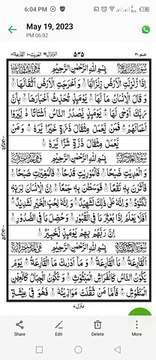 6:04 PM
May 19, 2023
PM 06:02
۵۳۵
بِسْمِ اللهِ الرَّحْمٰنِ الرَّحِيْمِ
اِذَا زُلْزِلَتِ الْاَرْضُ زِلْزَالَهَا وَاَخْرَجَتِ الْاَرْضُ اَثْقَالَهَا
وَقَالَ الْاِنْسَانُ مَا لَهَا يَوْمَئِذٍ تُحَدِّثُ اَخْبَارَهَا بِاَنَّ
رَبَّكَ اَوْحٰى لَهَا يَوْمَئِذٍ يَّصْدُرُ النَّاسُ اَشْتَاتًا لِّيُرَوْا
اَعْمَالَهُمْ فَمَنْ يَّعْمَلْ مِثْقَالَ ذَرَّةٍ خَيْرًا يَّرَهٗ
وَمَنْ يَّعْمَلْ مِثْقَالَ ذَرَّةٍ شَرًّا يَّرَهٗ
بِسْمِ اللهِ الرَّحْمٰنِ الرَّحِيْمِ
وَالْعٰدِيٰتِ ضَبْحًا فَالْمُوْرِيٰتِ قَدْحًا فَالْمُغِيْرٰتِ صُبْحًا
فَاَثَرْنَ بِهٖ نَقْعًا فَوَسَطْنَ بِهٖ جَمْعًا اِنَّ الْاِنْسَانَ لِرَبِّهٖ
لَكَنُوْدٌ وَاِنَّهٗ عَلٰى ذٰلِكَ لَشَهِيْدٌ وَاِنَّهٗ لِحُبِّ الْخَيْرِ لَشَدِيْدٌ
اَفَلَا يَعْلَمُ اِذَا بُعْثِرَ مَا فِى الْقُبُوْرِ وَحُصِّلَ مَا فِى الصُّدُوْرِ
اِنَّ رَبَّهُمْ بِهِمْ يَوْمَئِذٍ لَّخَبِيْرٌ
بِسْمِ اللهِ الرَّحْمٰنِ الرَّحِيْمِ
اَلْقَارِعَةُ مَا الْقَارِعَةُ وَمَا اَدْرٰىكَ مَا الْقَارِعَةُ يَوْمَ
يَكُوْنُ النَّاسُ كَالْفَرَاشِ الْمَبْثُوْثِ وَتَكُوْنُ الْجِبَالُ كَالْعِهْنِ
الْمَنْفُوْشِ فَاَمَّا مَنْ ثَقُلَتْ مَوَازِيْنُهٗ فَهُوَ فِىْ عِيْشَةٍ
Share Edit Delete More